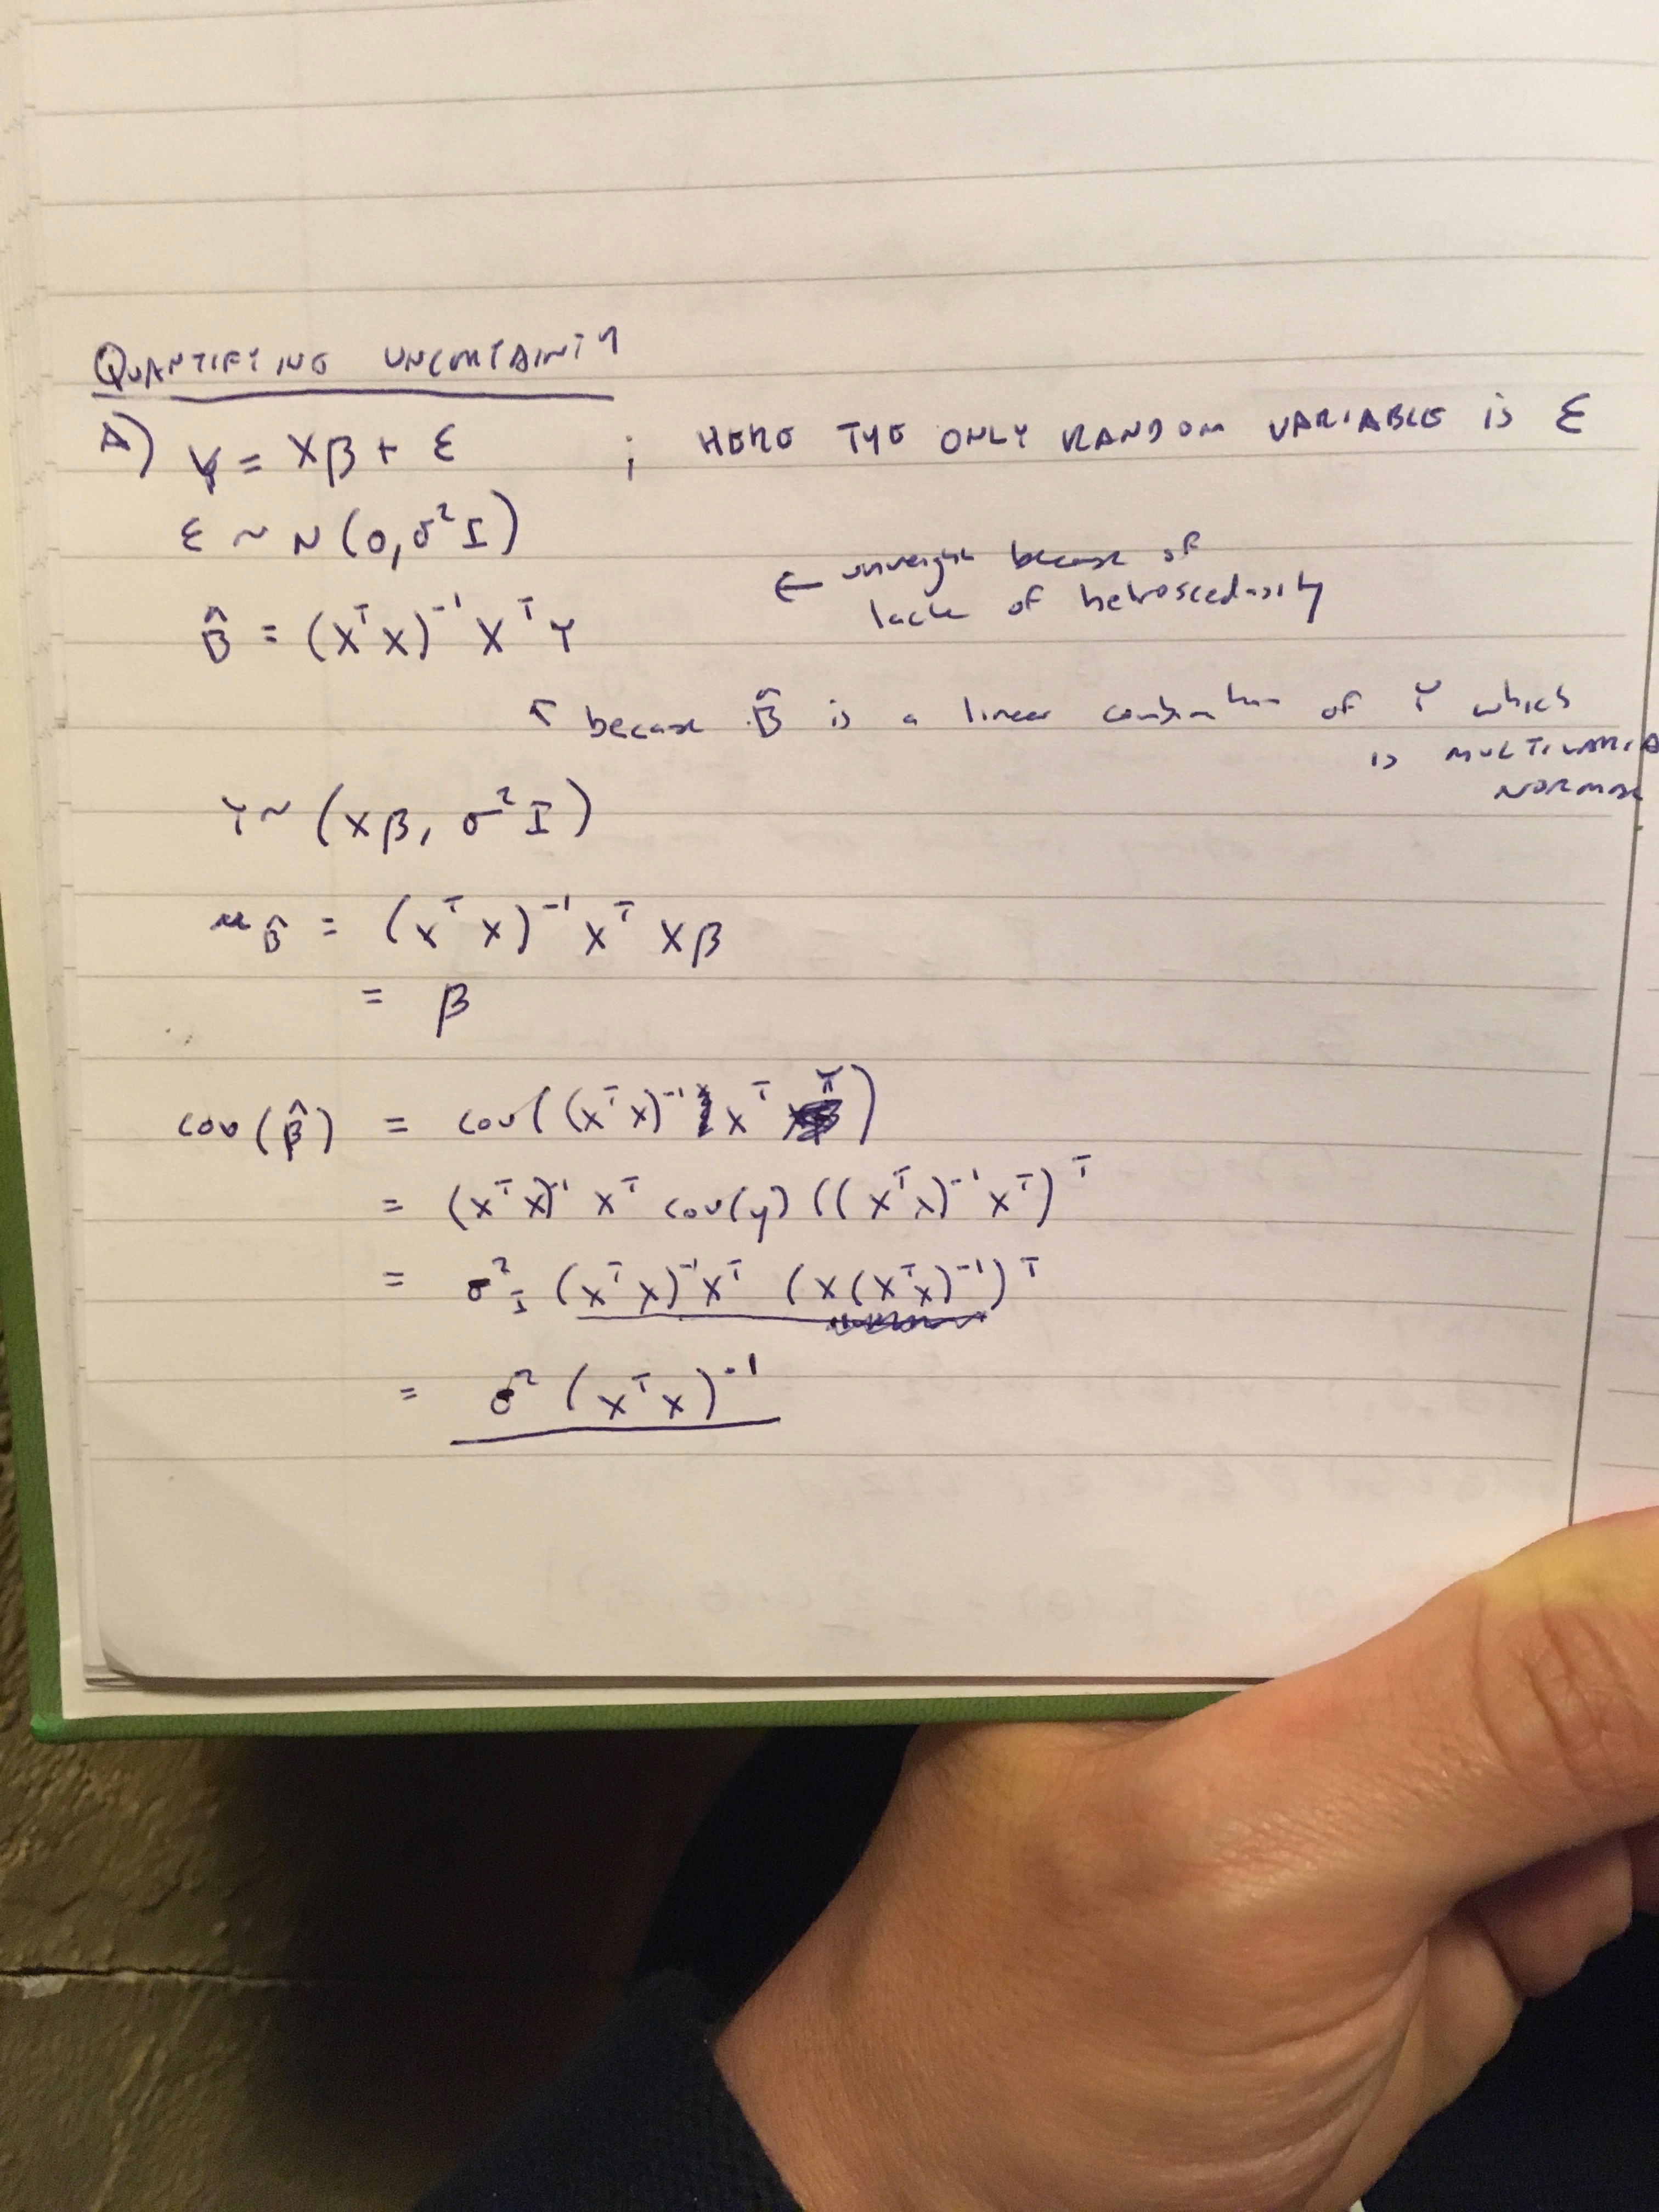 QUANTIFYING UNCERTAINTY
A) y = Xβ + ε ; HERE THE ONLY RANDOM VARIABLE IS ε
ε ~ N(0, σ²I)
← unweight because of
lack of hetroscedasity
B̂ = (XᵀX)⁻¹XᵀY
↑ because B̂ is a linear combination of Y which
is MULTIVARIA
NORMAL
Y~ (Xβ, σ²I)
μ_B̂ = (XᵀX)⁻¹Xᵀ Xβ
= β
cov(β̂) = cov((XᵀX)⁻¹ Xᵀ Y)
= (XᵀX)⁻¹ Xᵀ cov(y) ((XᵀX)⁻¹ Xᵀ)ᵀ
= σ²I (XᵀX)⁻¹Xᵀ (X(XᵀX)⁻¹)ᵀ
= σ² (XᵀX)⁻¹